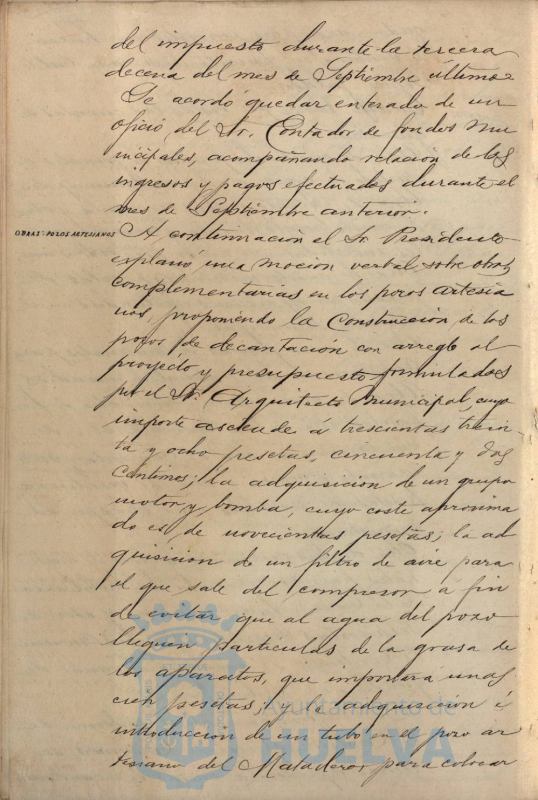 del impuesto durante la tercera
decena del mes de Septiembre último.
Se acordó quedar enterado de un
oficio, del Sr. Contador de fondos mu
nicipales, acompañando relación de los
ingresos y pagos efectuados durante el
mes de Septiembre anterior.
OBRAS: POZOS ARTESIANOS
A continuación el Sr. Presidente
explanó una moción verbal sobre obras
complementarias en los pozos artesia
nos, proponiendo la construcción de los
pozos de decantación con arreglo al
proyecto y presupuesto formulados
por el Sr. Arquitecto Municipal, cuyo
importe asciende á trescientas trein
ta y ocho pesetas, cincuenta y dos
céntimos; la adquisición de un grupo
motor, y bomba, cuyo coste aproxima
do es de novecientas pesetas; la ad
quisición de un filtro de aire para
el que sale del compresor a fin
de evitar que al agua del pozo
lleguen partículas de la grasa de
los aparatos, que importará unas
cien pesetas; y la adquisición é
introducción de un tubo en el pozo ar
tesiano del Matadero, para colocar
Ayuntamiento de
HUELVA